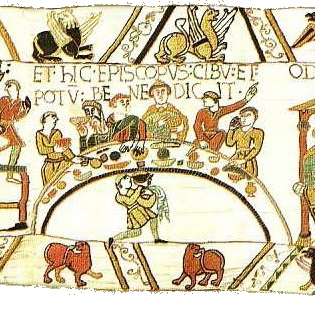 ET hIC·EPISCOPVS:CIBV:ET· OD
POTV: BE NE DIC IT·